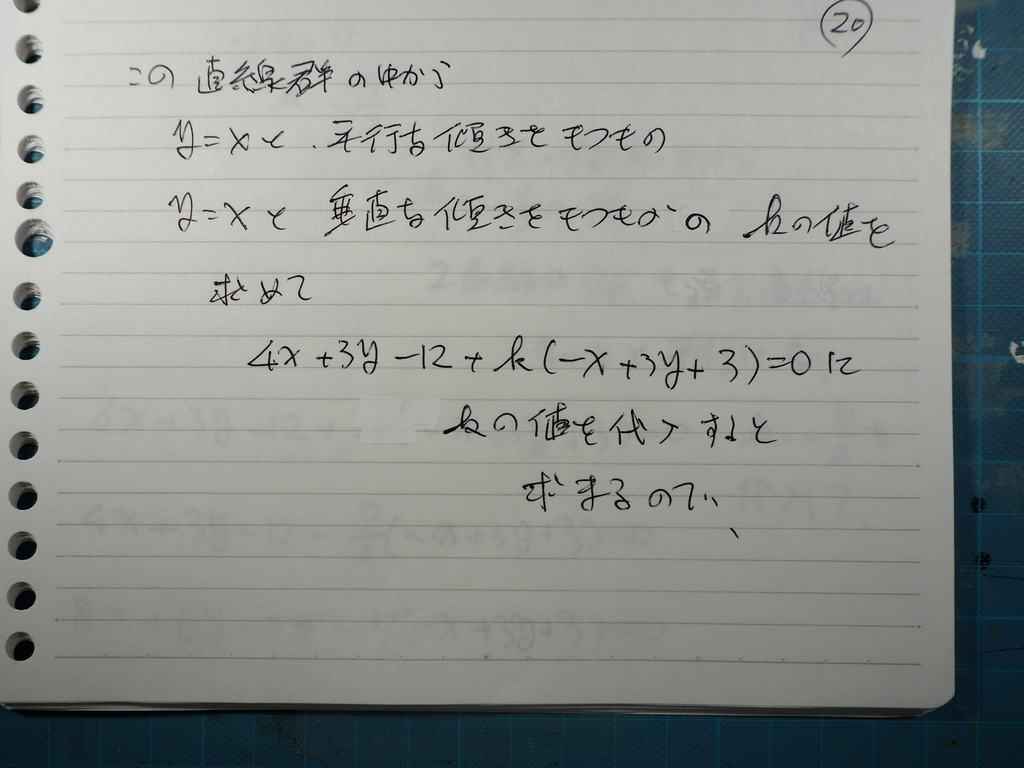 ⑳
この直線群の中から
y=xと.平行な傾きをもつもの
y=xと垂直な傾きをもつものの kの値を
求めて
4x+3y-12+k(-x+3y+3)=0に
kの値を代入すると
求まるので、